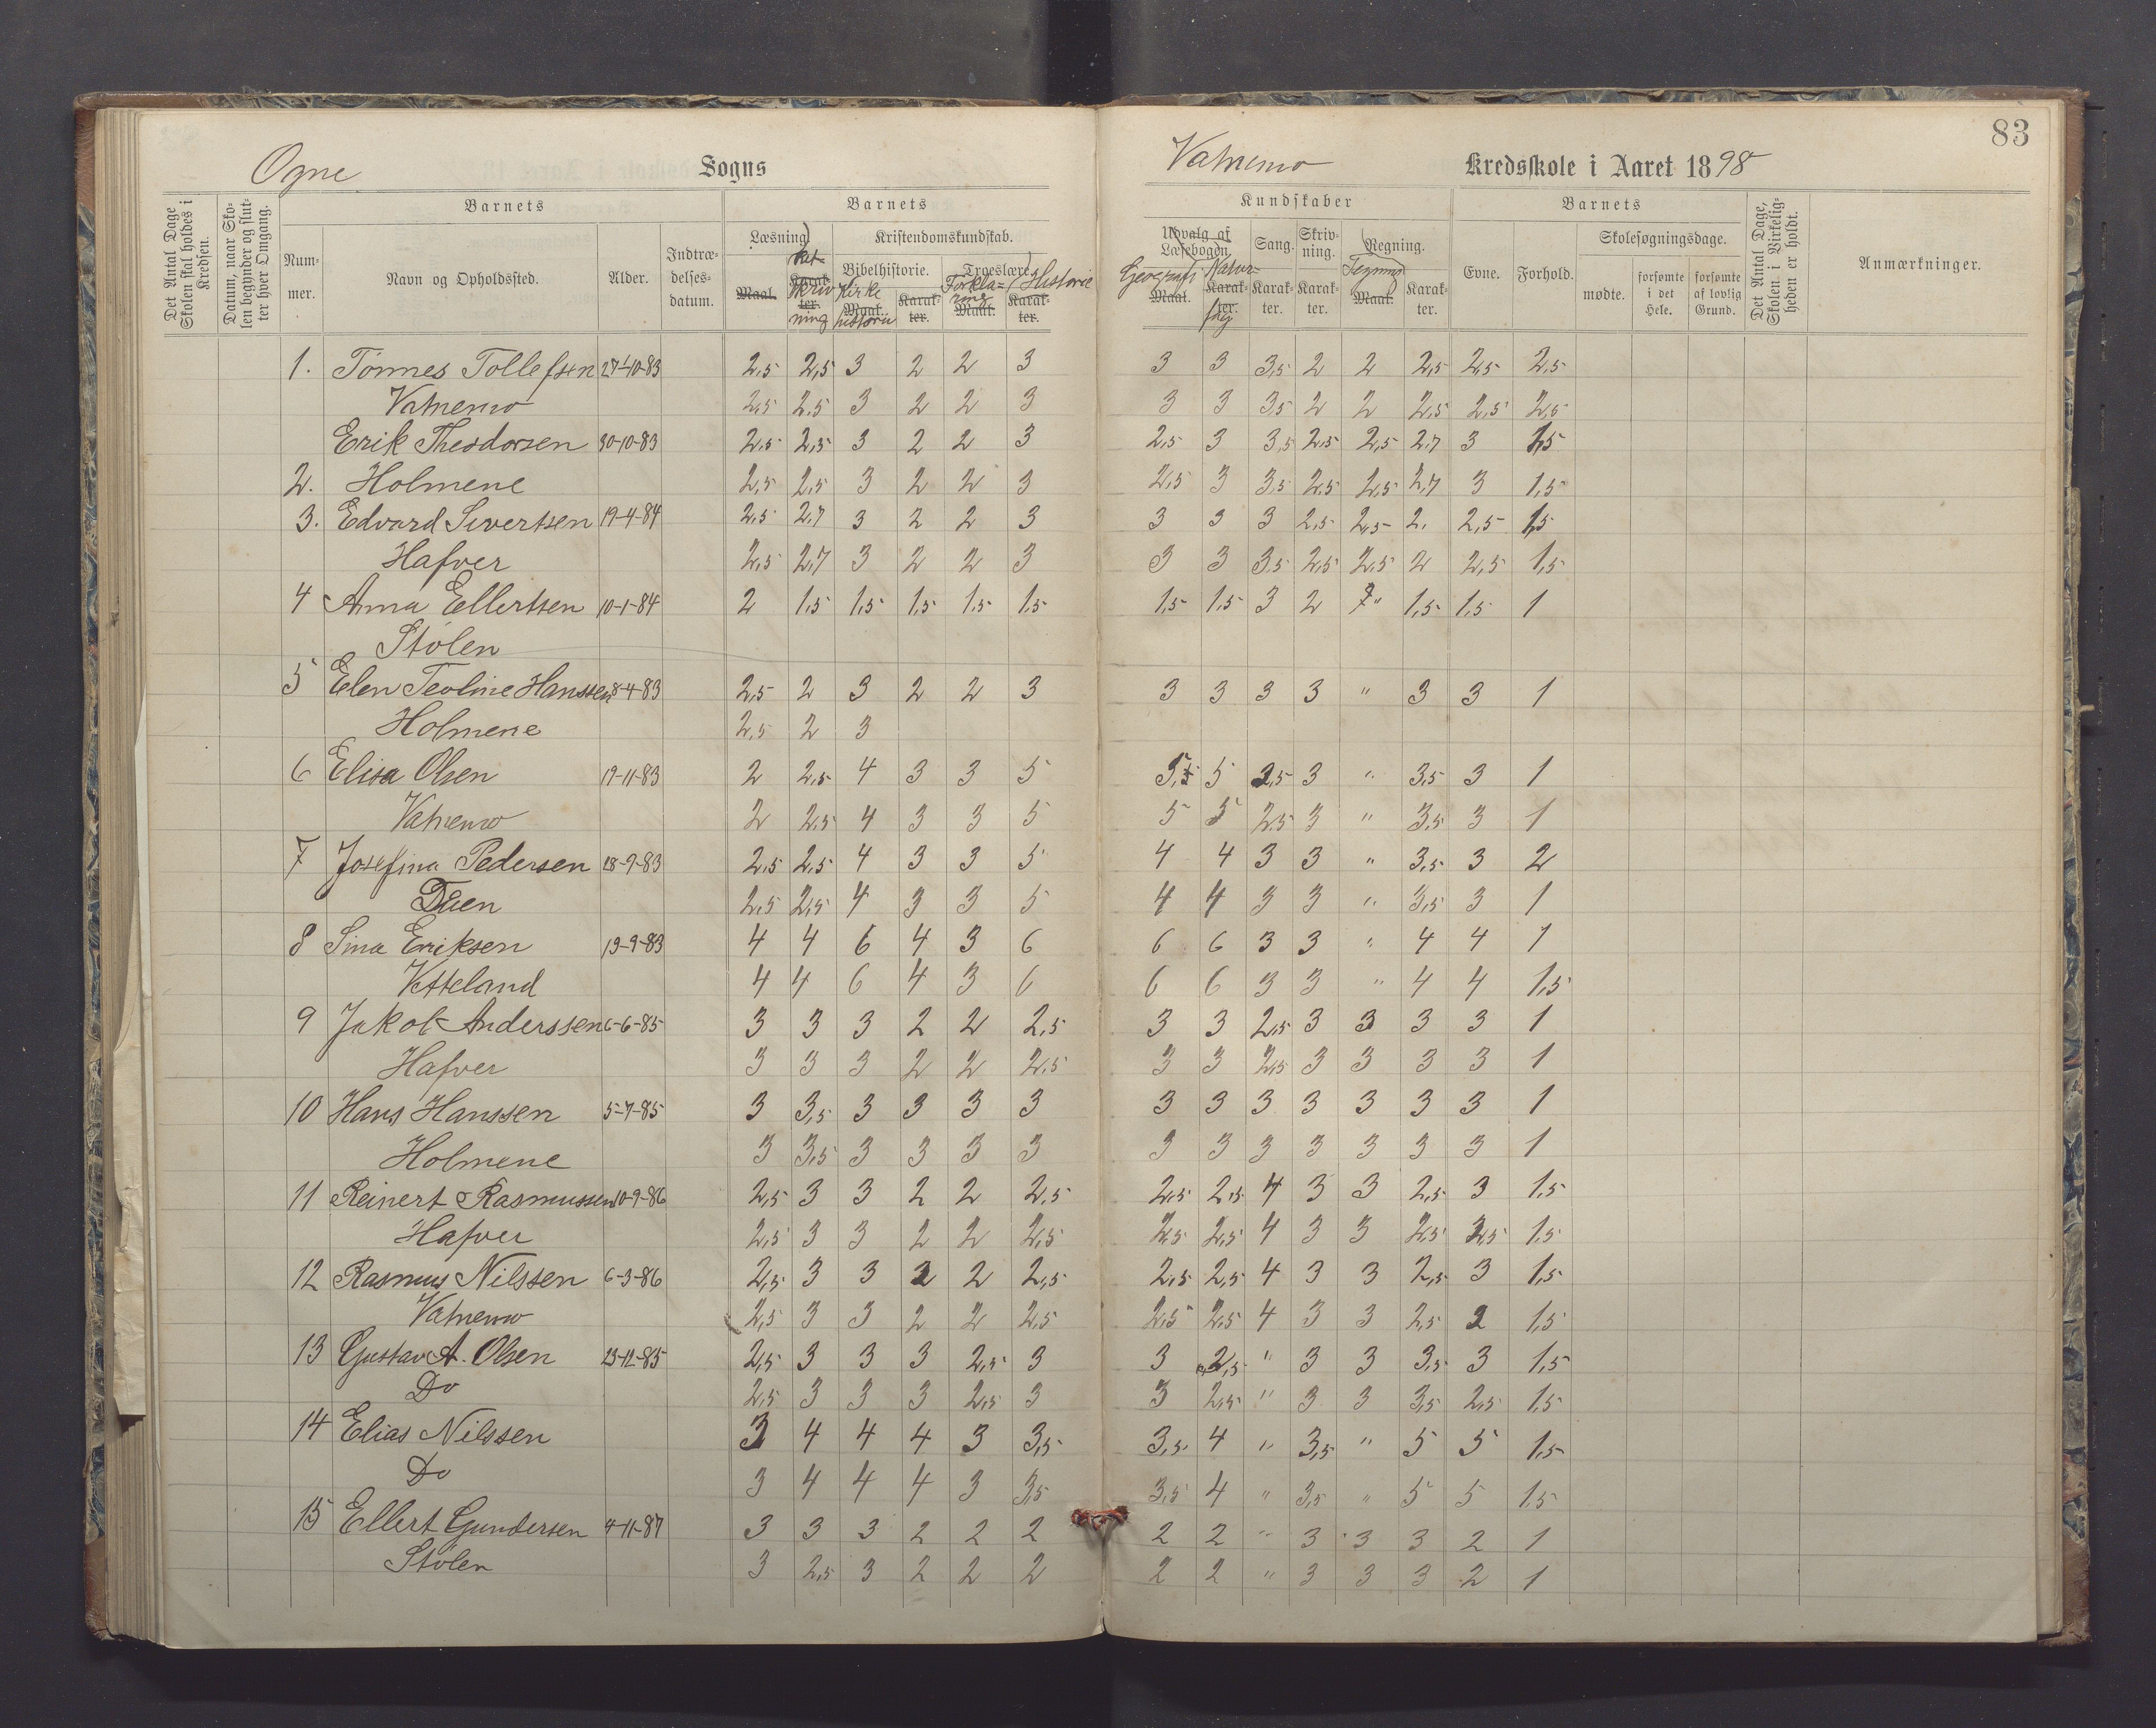 83
Ogne Sogns Vatnemo Kredsskole i Aaret 1898
Det Antal Dage Skolen skal holdes i Kredsen.
Datum, naar Skolen begynder og slutter hver Omgang.
Barnets
Nummer.
Navn og Opholdssted.
Alder.
Indtrædelsesdatum.
Barnets
Læsning
Maal.
Karakter.
Kristendomskundskab.
Bibelhistorie.
Kirkehistorie
Maal.
Karakter.
Troeslære
Forklaring
Maal.
Historie
Karakter.
Kundskaber
Udvalg af Læsebogen.
Geografi
Maal.
Naturfag
Karakter.
Sang.
Karakter.
Skrivning.
Karakter.
Regning.
Tegning
Maal.
Karakter.
Barnets
Evne.
Forhold.
Skolesøgningsdage.
mødte.
forsømte i det Hele.
forsømte af lovlig Grund.
Det Antal Dage, Skolen i Virkeligheden er holdt.
Anmærkninger.
1. Tønnes Tollefsen 27-10-83 2,5 2,5 3 2 2 3 3 3 3,5 2 2 2,5 2,5 2,5
Vatnemo 2,5 2,5 3 2 2 3 3 3 3,5 2 2 2,5 2,5 2,5
Erik Theodorsen 30-10-83 2,5 2,5 3 2 2 3 2,5 3 3,5 2,5 2,5 2,7 3 1,5
2. Holmene 2,5 2,5 3 2 2 3 2,5 3 3,5 2,5 2,5 2,7 3 1,5
3. Edvard Sivertsen 19-4-84 2,5 2,7 3 2 2 3 3 3 3 2,5 2,5 2. 2,5 1,5
Hafver 2,5 2,7 3 2 2 3 3 3 3,5 2,5 2,5 2 2,5 1,5
4 Anna Ellertsen 10-1-84 2 1,5 1,5 1,5 1,5 1,5 1,5 1,5 3 2 " 1,5 1,5 1
Stølen
5 Elen Teoline Hanssen 8-4-83 2,5 2 3 2 2 3 3 3 3 3 " 3 3 1
Holmene 2,5 2 3
6 Elisa Olsen 19-11-83 2 2,5 4 3 3 5 5 2,5 3 " 3,5 3 1
Vatnemo 2 2,5 4 3 3 5 5 5 2,5 3 " 3,5 3 1
7 Josefina Pedersen 18-9-83 2,5 2,5 4 3 3 5 4 4 3 3 " 3,5 3 2
2,5 2,5 4 3 3 5 4 4 3 3 " 3,5 3 1
8 Sina Eriksen 19-9-83 4 4 6 4 3 6 6 6 3 3 " 4 4 1
Vetteland 4 4 6 4 3 6 6 6 3 3 " 4 4 1,5
9 Jakob Anderssen 6-6-85 3 3 3 2 2 2,5 3 3 2,5 3 3 3 3 1
Hafver 3 3 3 2 2 2,5 3 3 2,5 3 3 3 3 1
10 Hans Hanssen 5-7-85 3 3,5 3 3 3 3 3 3 3 3 3 3 3 1
Holmene 3 3,5 3 3 3 3 3 3 3 3 3 3 3 1
11 Reinert Rasmussen 10-9-86 2,5 3 3 2 2 2,5 2,5 2,5 4 3 3 2,5 3 1,5
Hafver 2,5 3 3 2 2 2,5 2,5 2,5 4 3 3 2,5 2,5 1,5
12 Rasmus Nilssen 6-3-86 2,5 3 3 2 2 2,5 2,5 2,5 4 3 3 2,5 3 1,5
Vatnemo 2,5 3 3 2 2 2,5 2,5 2,5 4 3 3 2,5 2 1,5
13 Gustav A. Olsen 23-12-85 2,5 3 3 3 2,5 3 3 2,5 " 3 3 3,5 3 1,5
Do 2,5 3 3 3 2,5 3 3 2,5 " 3 3 3,5 2,5 1,5
14 Elias Nilssen 3 4 4 4 3 3,5 3,5 4 " 3,5 " 5 5 1,5
Do 3 4 4 4 3 3,5 3,5 4 " 3,5 " 5 5 1,5
15 Ellert Gundersen 4-11-87 3 3 3 2 2 2 2 2 " 3 3 3 2 1
Stølen 3 2,5 3 2 2 2 2 2 " 3 3 3 2 1